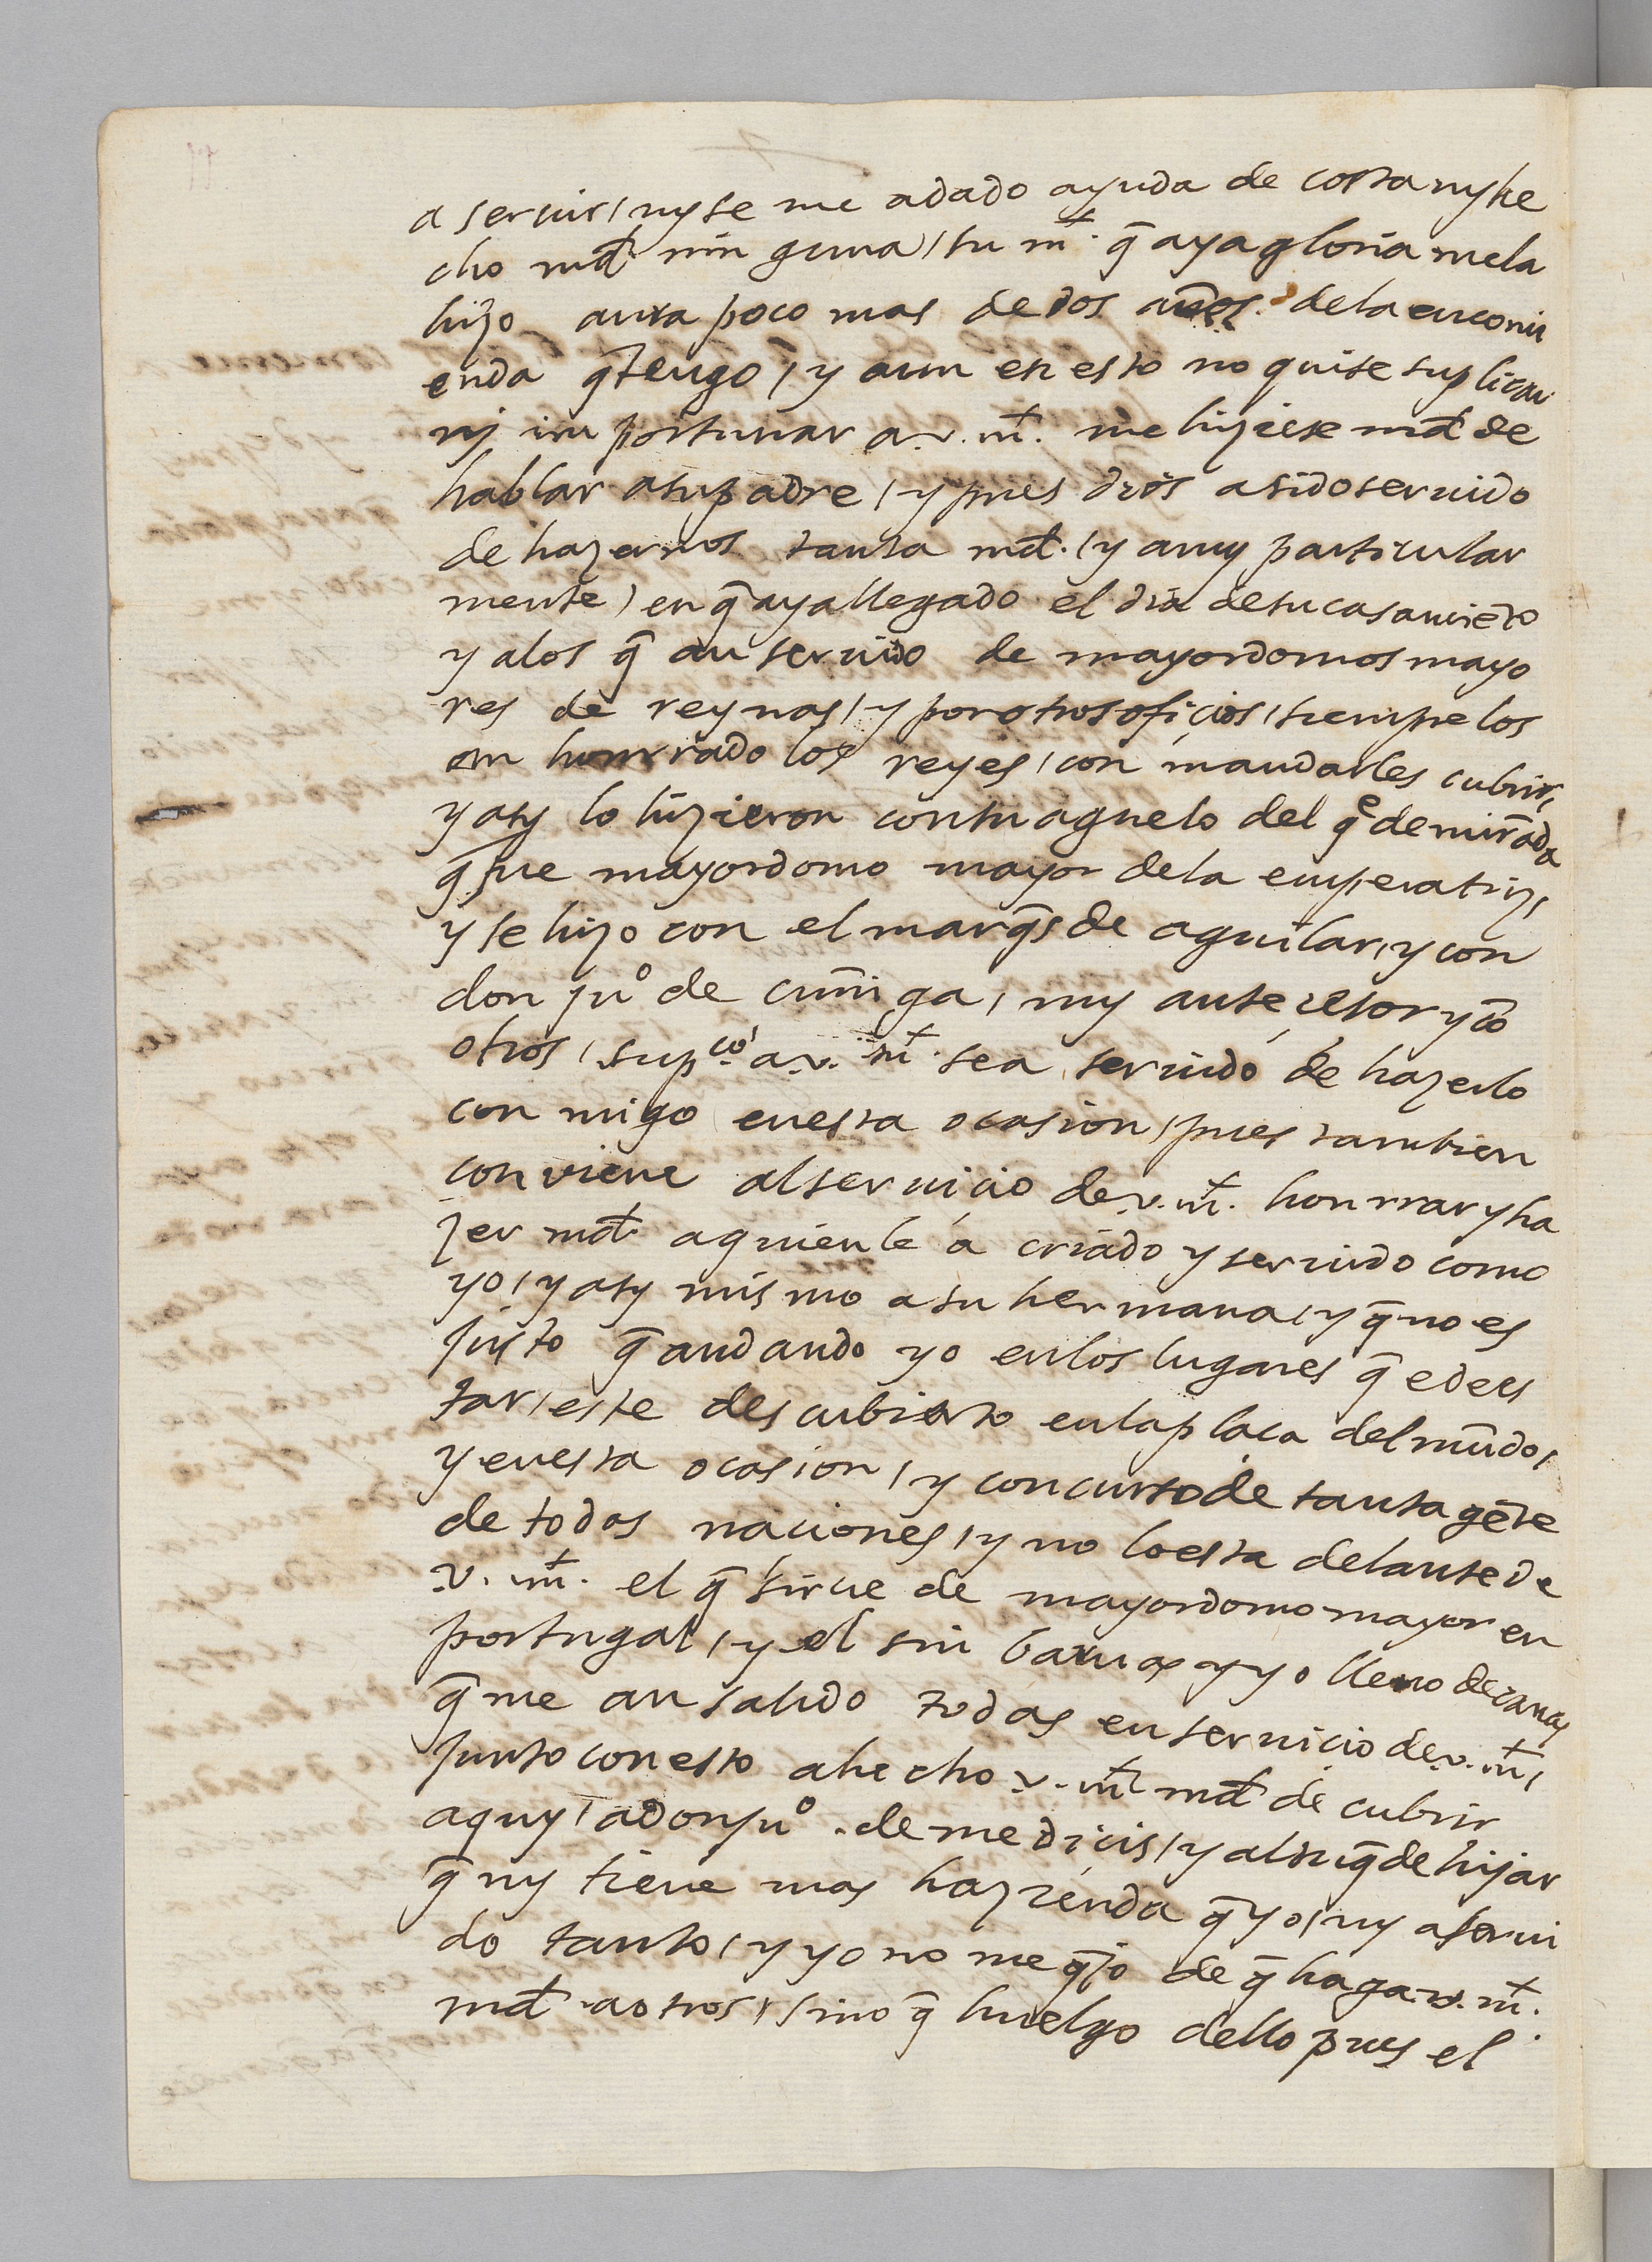 a seruir, ny se me a dado ayuda de costa ny he
cho md ninguna, su mt. q̃ aya gloria me la
hizo aura poco mas de dos años. de la encomi
enda q̃ tengo, y aun en esto no quise suplicar
nj inportunar a v. mt. me hiziese md de
hablar a su padre, y pues dios a sido seruido
de hazernos tanta md. (y a my particular
mente) en q̃ aya llegado el dia de su casamiẽto
y a los q̃ an seruido de mayordomos mayo
res de reynas, y por otros oficios, siempre los
an honrrado los reyes, con mandarles cubrir,
y asy lo hizieron con su aguelo del q̃e de mirãda
q̃ fue mayordomo mayor de la enperatriz,
y se hizo con el marq̃s de aguilar, y con
don juº de cuñiga, my anteçesor y cõ
otros, supco a v. mt sea seruido de hazerlo
con migo en esta ocasion, pues tambien
conviene al seruicio de v. mt. honrrar y ha
zer md a quien le a criado y seruido como
yo, y asy mismo a su hermana, y q̃ no es
justo q̃ andando yo en los lugares q̃ e de es
tar, este descubierto en la plaça del mũdo,
y en esta ocasion, y concurso de tanta gẽte
de todas naciones, y no lo esta delante de
v. mt. el q̃ sirue de mayordomo mayor en
portugal, y el sin baruas y yo lleno de canas
q̃ me an salido todas en seruicio de v. mt,
junto con esto a hecho v. mt md de cubrir
aquy, a don juº de medicis, y al duq̃ de hijar
q̃ ny tiene mas hazienda q̃ yo, ny a serui
do tanto, y yo no me q̃jo de q̃ haga v. mt.
md a otros, sino q̃ huelgo dello pues el